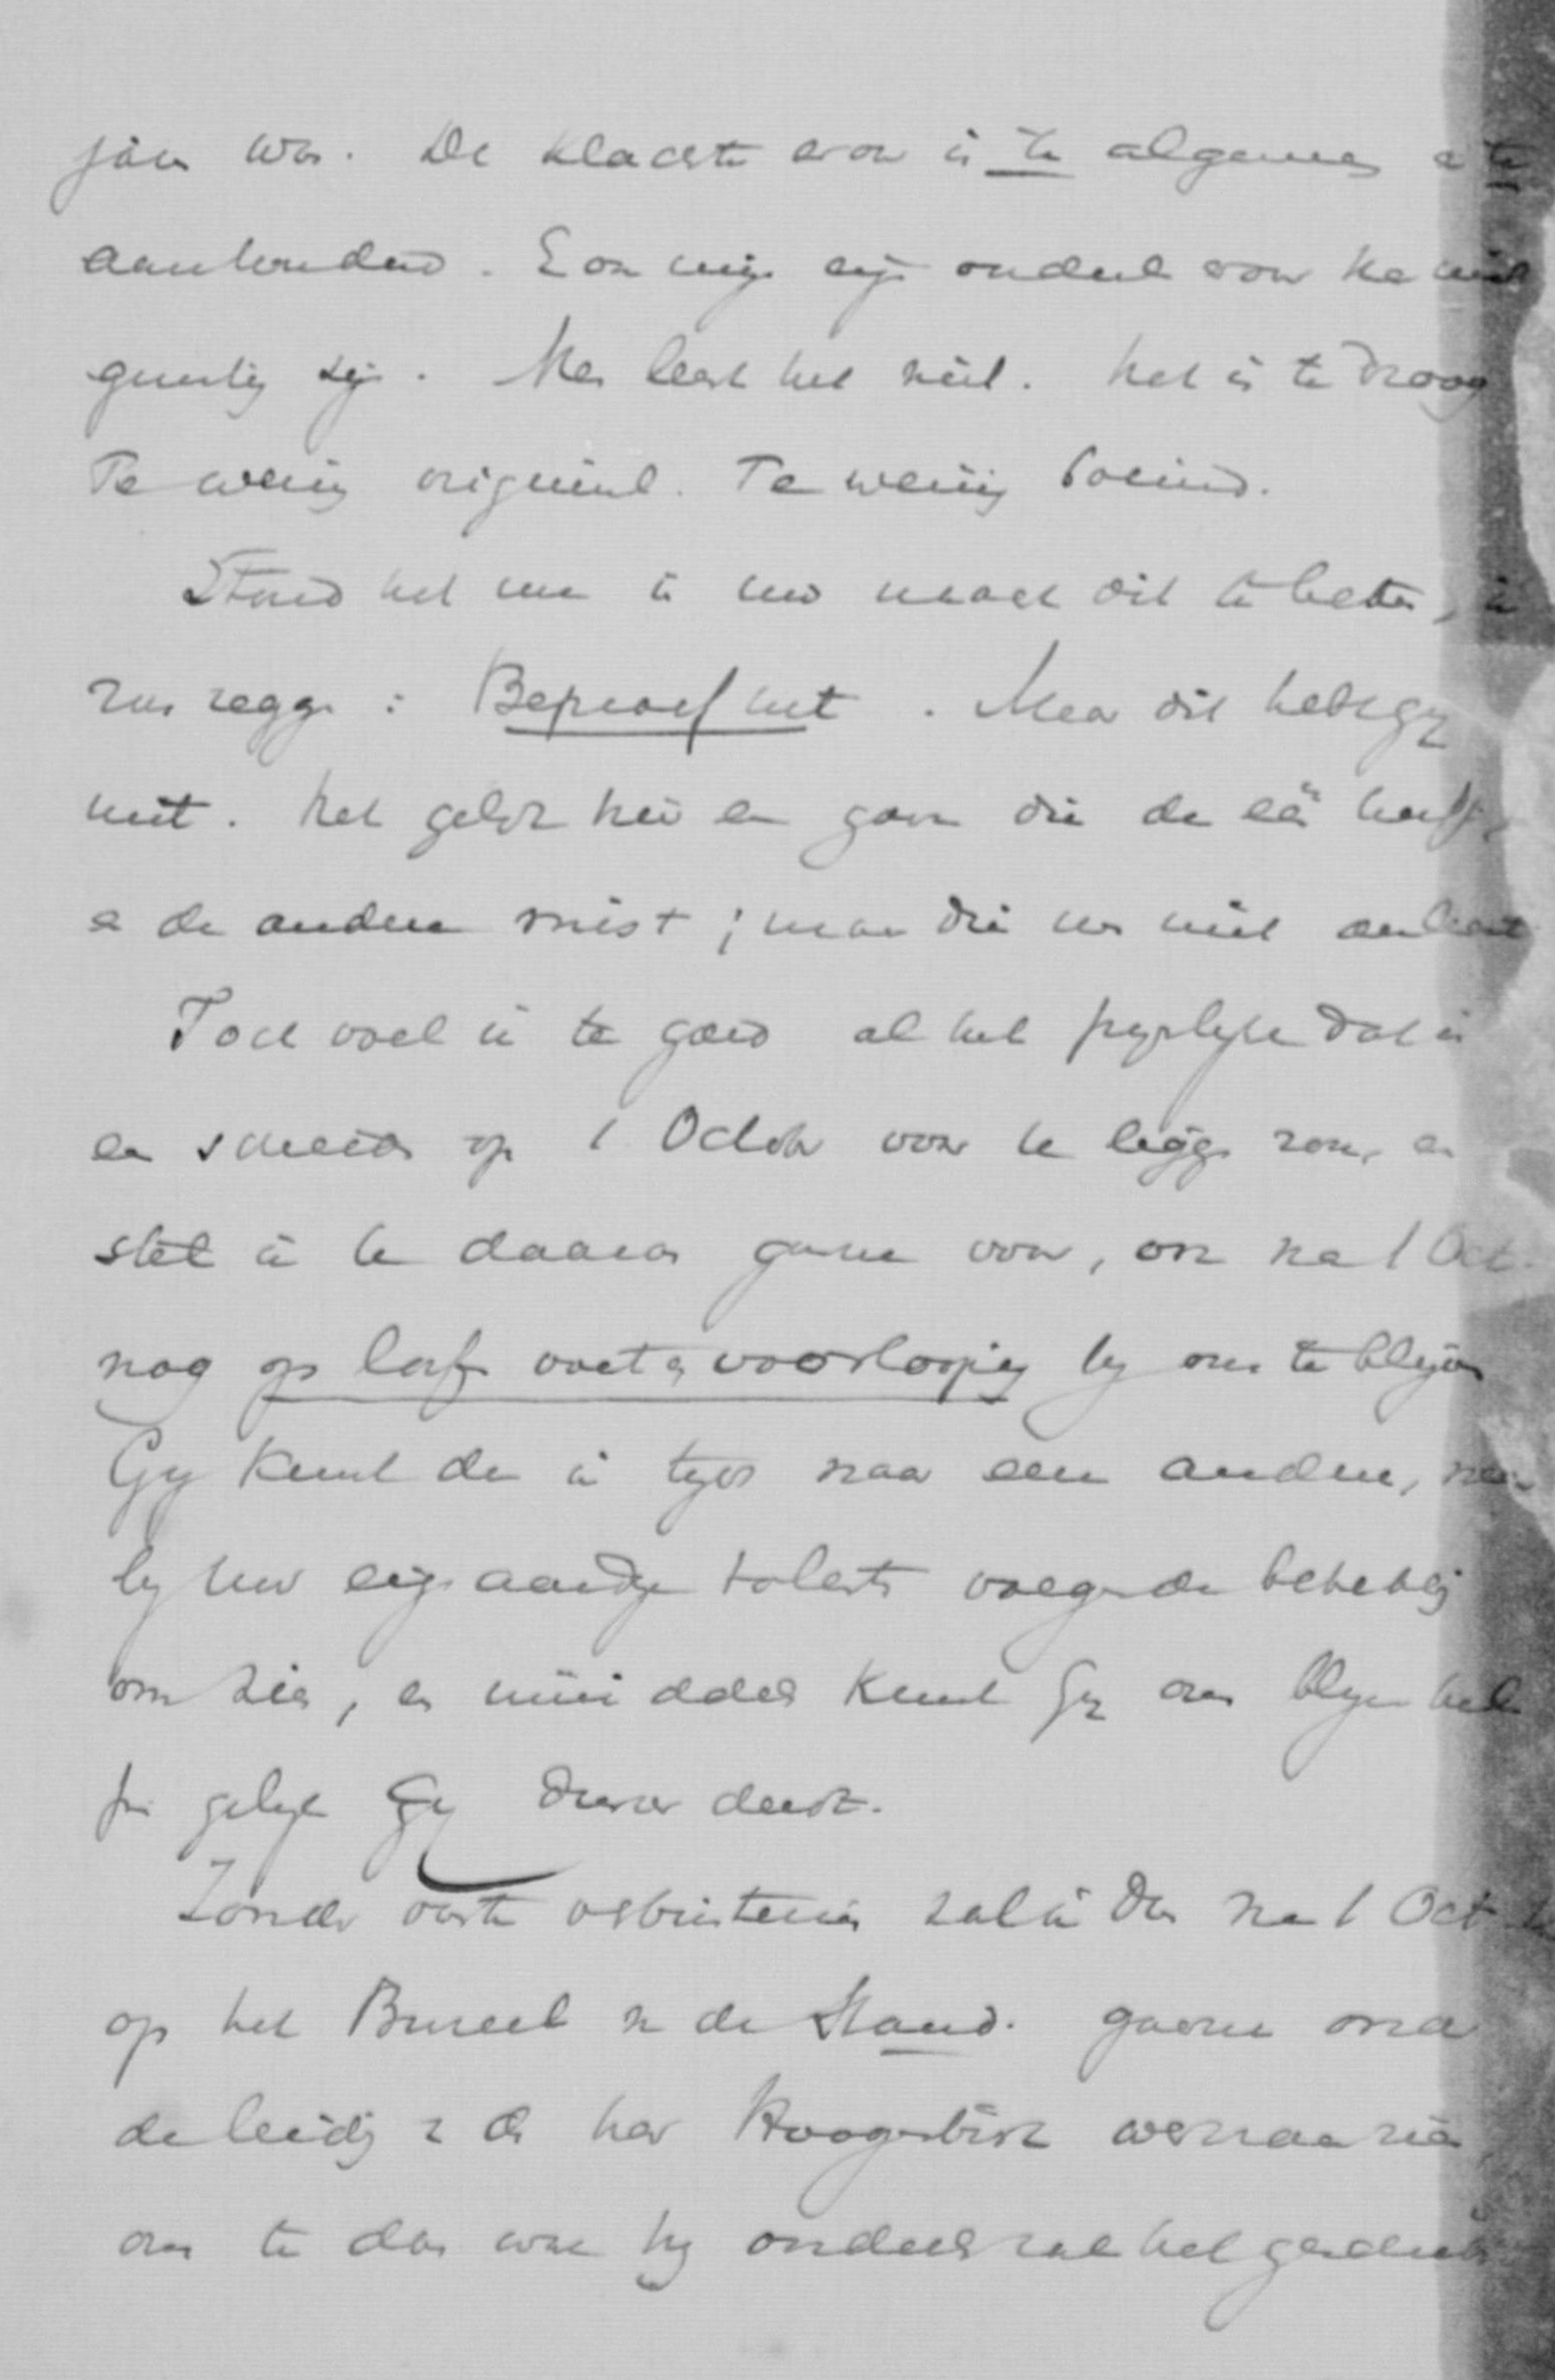 jaar was. De klacht erover is te algemeen en te
aanhoudend. Kan mijn eigen oordeel erover niet
gunstig zijn. Men leest het niet. Het is te droog
Te weinig origineel. Te weinig boeiend.
Stond het nu in uw macht dit te beteren, ik
zou zeggen: Beproef het. Maar dit hebt gy
niet. Het geldt hier een gave die de een heeft,
en de andere mist; maar die men niet aanleert
Toch voel ik te goed al het pynlyke dat in
een scheiden op 1 October voor U liggen zou, en
stel ik U daarom gaarne voor, om na 1 Oct.
nog op losse voet en voorloopig by ons te blyven
Gy kunt dan in tyds naar een andere, meer
by uw eigenaardige talenten voegende betrekking
omzien, en inmiddels kunt Gy ons blyven
gelyk Gy dusver deedt.
Zonder vaste verbintenis zal ik dan na 1 Oct U
op het Bureel v. de Stand. gaarne onder
de leiding v. den heer Hoogenbirk werkzaam zien
om te doen wat hy oordeelt